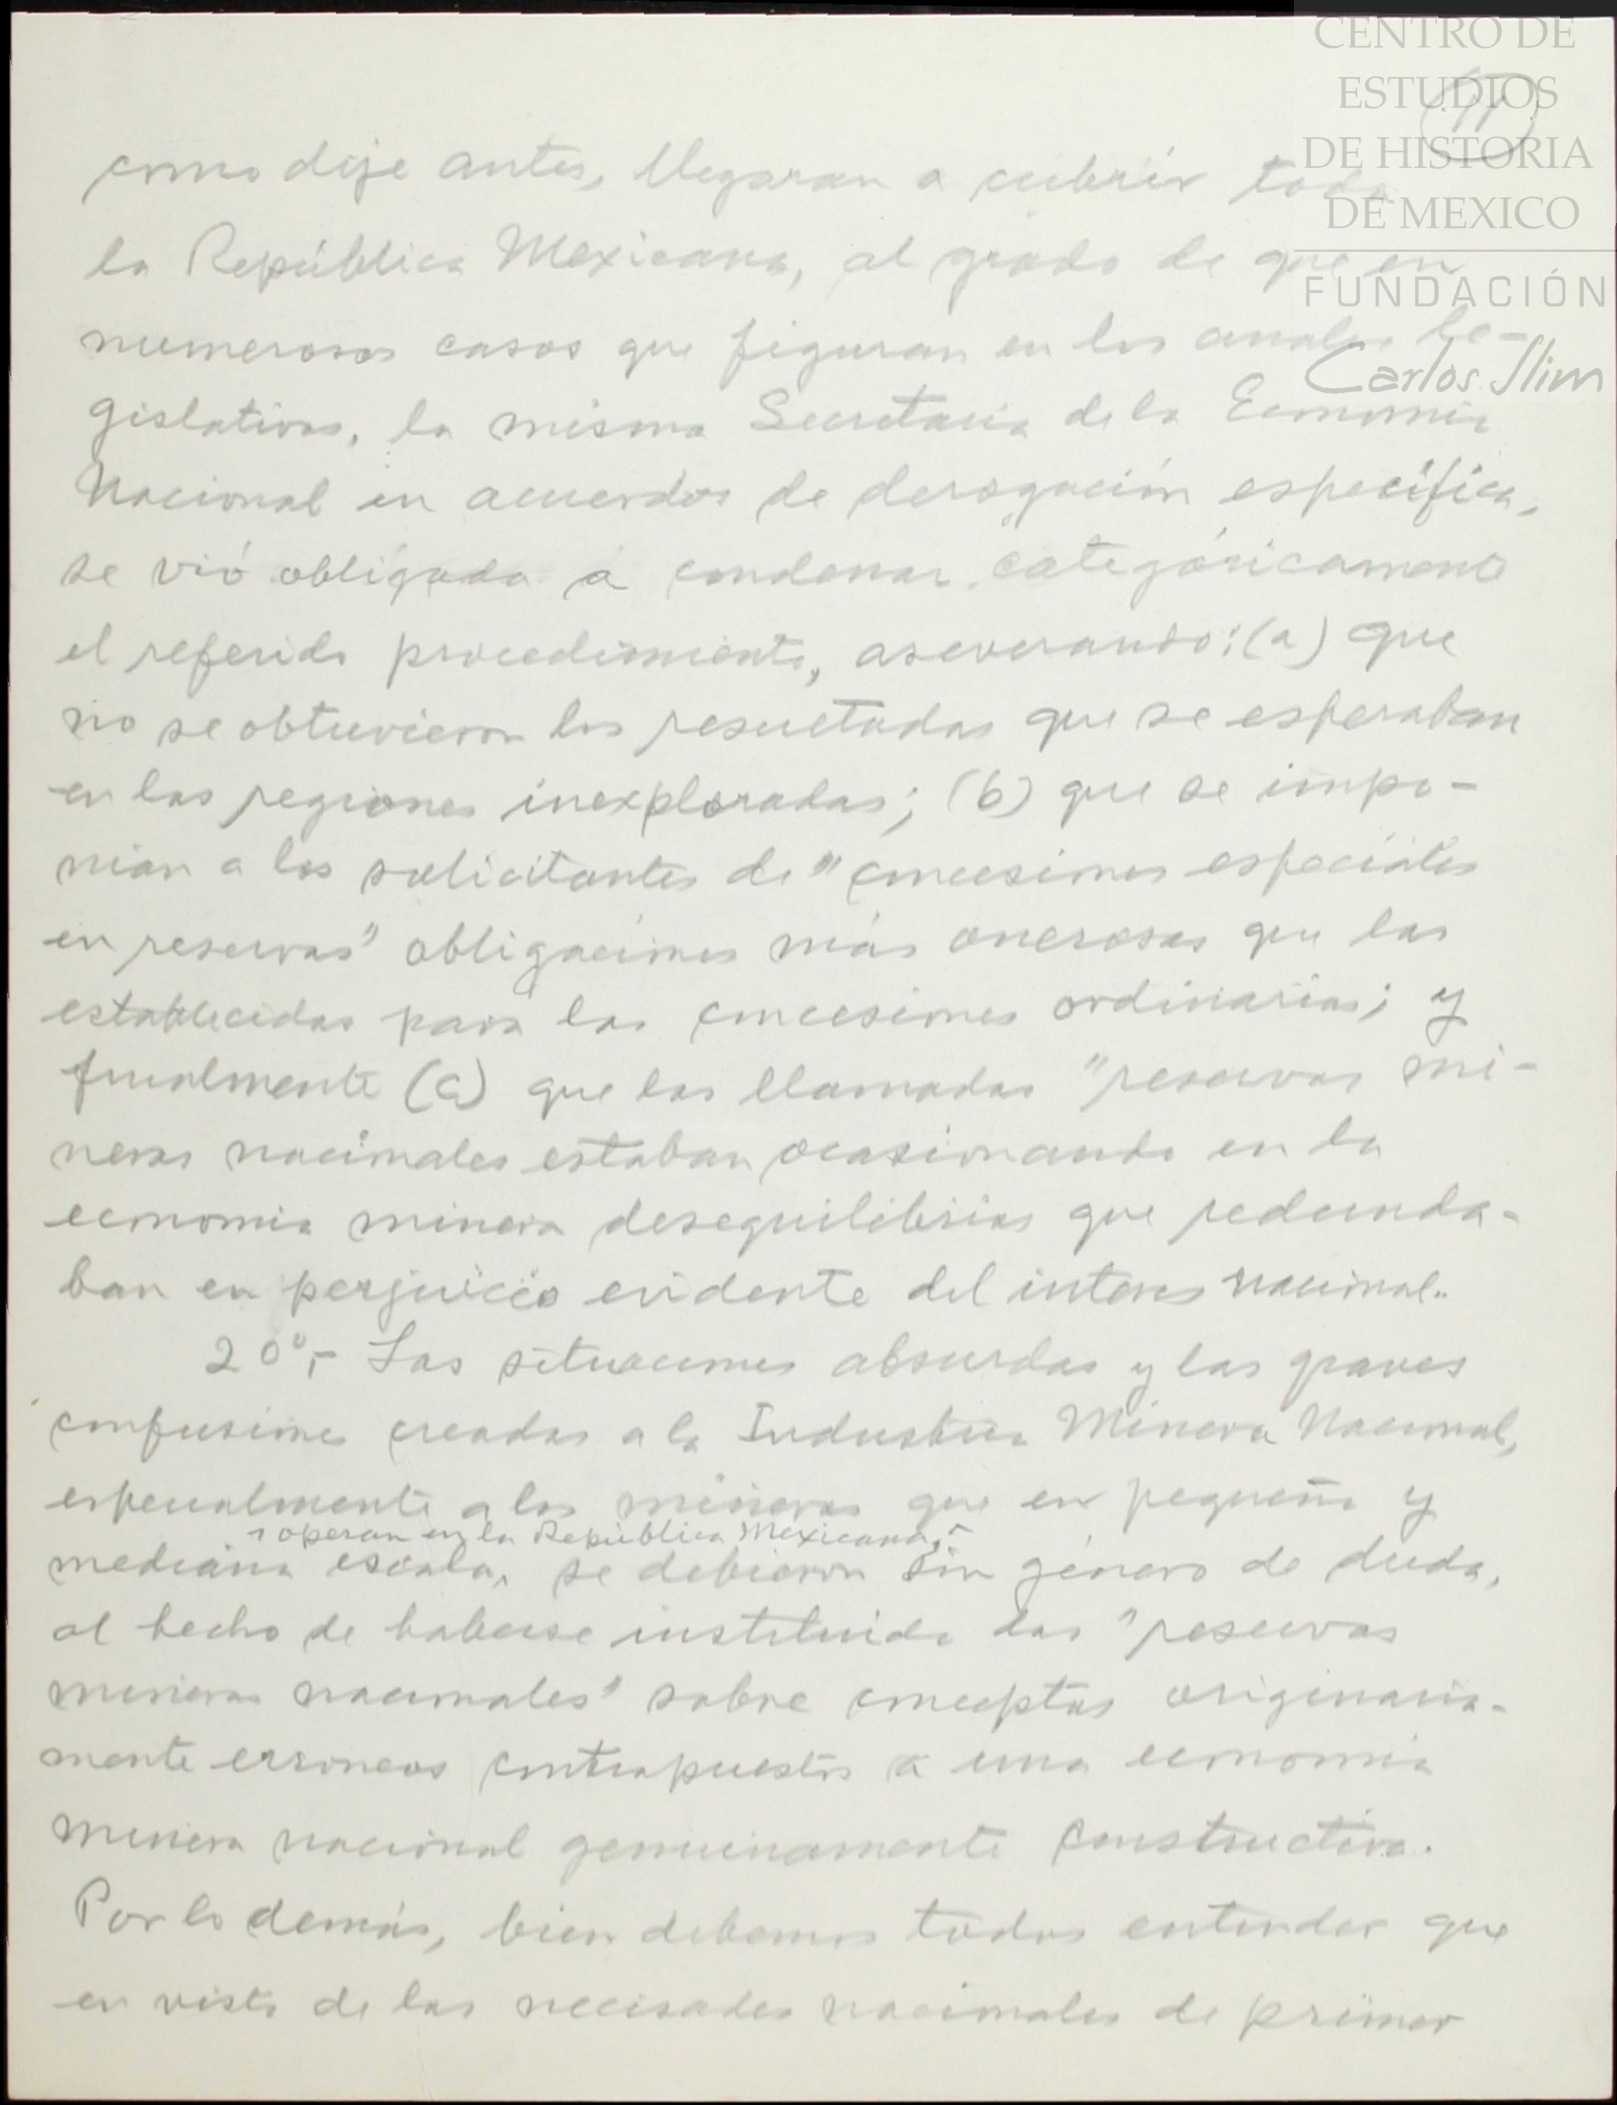 CENTRO DE
ESTUDIOS
DE HISTORIA
DE MEXICO
FUNDACIÓN
Carlos Slim
como dije antes, llegaran a cubrir toda
la República Mexicana, al grado de que en
numerosos casos que figuran en los anales le-
gislativos, la misma Secretaria de la Economia
Nacional en acuerdos de derogación específica,
se vió obligada a condenar categóricamente
el referido procedimiento, aseverando: (a) que
no se obtuvieron los resultados que se esperaban
en las regiones inexploradas; (b) que se impo-
nian a los solicitantes de "concesiones especiales
en reservas" obligaciones más onerosas que las
establecidas para las concesiones ordinarias; y
finalmente (c) que las llamadas "reservas mi-
neras nacionales estaban ocasionando en la
economia minera desequilibrios que redunda-
ban en perjuicio evidente del interes nacional.
20°,- Las situaciones absurdas y las graves
confusiones creadas a la Industria Minera Nacional,
especialmente a los mineros que en pequeña y
operan en la República Mexicana,
mediana escala, se debieron sin género de duda,
al hecho de haberse instituido las "reservas
mineras nacionales" sobre conceptos originaria-
mente erroneos contrapuestos a una economia
minera nacional genuinamente constructiva.
Por lo demás, bien debemos todos entender que
en vista de las necisades nacionales de primer